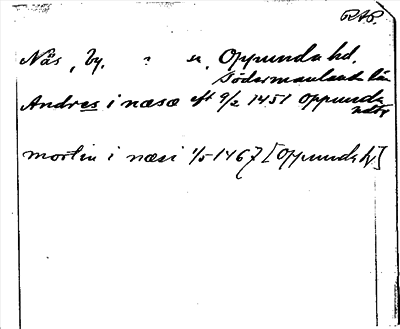 RAP.
Näs, by. : sn, Oppunda hd.
Södermanlands län
Andres i næsæ eft 9/2 1451 Oppunda
ndbg
mortin i næsi 1/5 1467 [Oppunda h]